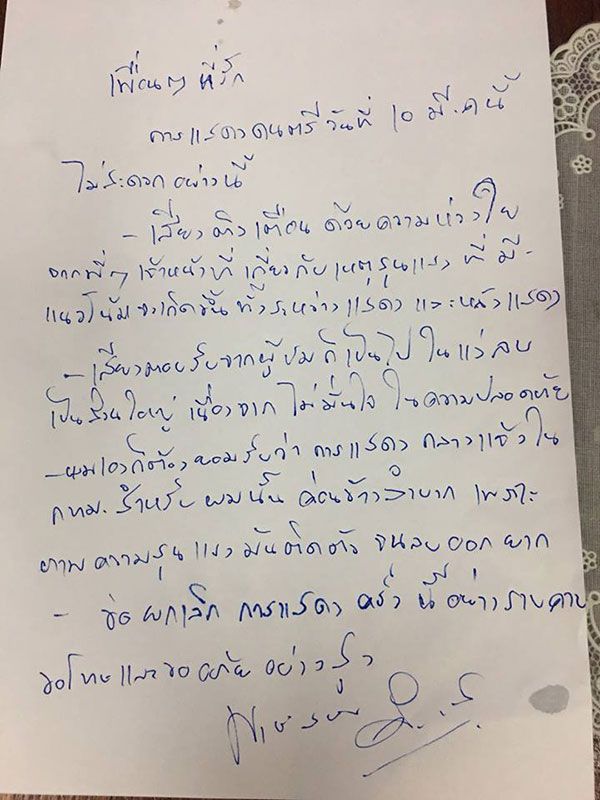 เพื่อนๆ ที่รัก
การแสดงดนตรีวันที่ 10 มี.ค นี้
ไม่สะดวกอย่างนี้
- เสียงติงเตือน ด้วยความห่วงใย
จากพี่ๆ เจ้าหน้าที่ เกี่ยวกับเหตุรุนแรง ที่ มี-
แนวโน้มจะเกิดขึ้น ทั้งระหว่างแสดง และหลังแสดง
- เสียงตอบรับจากผู้ชมก็เป็นไป ในแง่ลบ
เป็นส่วนใหญ่ เนื่องจาก ไม่มั่นใจ ในความปลอดภัย
- ผมเองก็ต้องยอมรับว่า การแสดง กลางแจ้งใน
กทม. สำหรับ ผมนั้น ค่อนข้างลำบาก เพราะ
ภาพความรุนแรงมันติดตัว จนลบออก ยาก
- ขอ ยกเลิก การแสดง ครั้งนี้อย่างราบคาบ
ขอโทษและขออภัย อย่างสูง